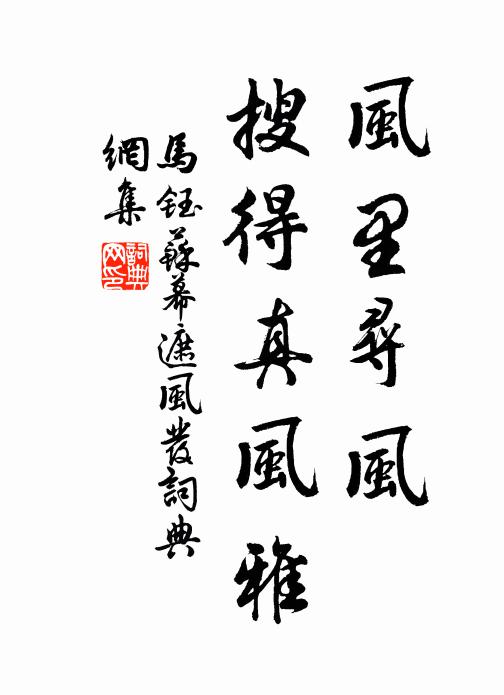 風里尋風
搜得真風雅
馬鈺蘇幕遮風發詞典
網集
詞典
网印